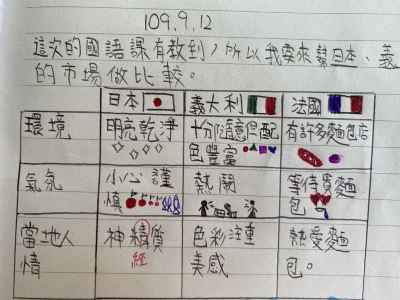 109.9.12
這次的國語課有教到，所以我要來幫日本、義
的市場做比較。
日本 義大利 法國
環境 明亮乾淨 十分隨意 配 有許多麵包店
色豐富
氣氛 小心謹 熱鬧 等待買麵
慎 包
當地人 神精質 色彩注重 熱愛麵
經
情 美感 包。